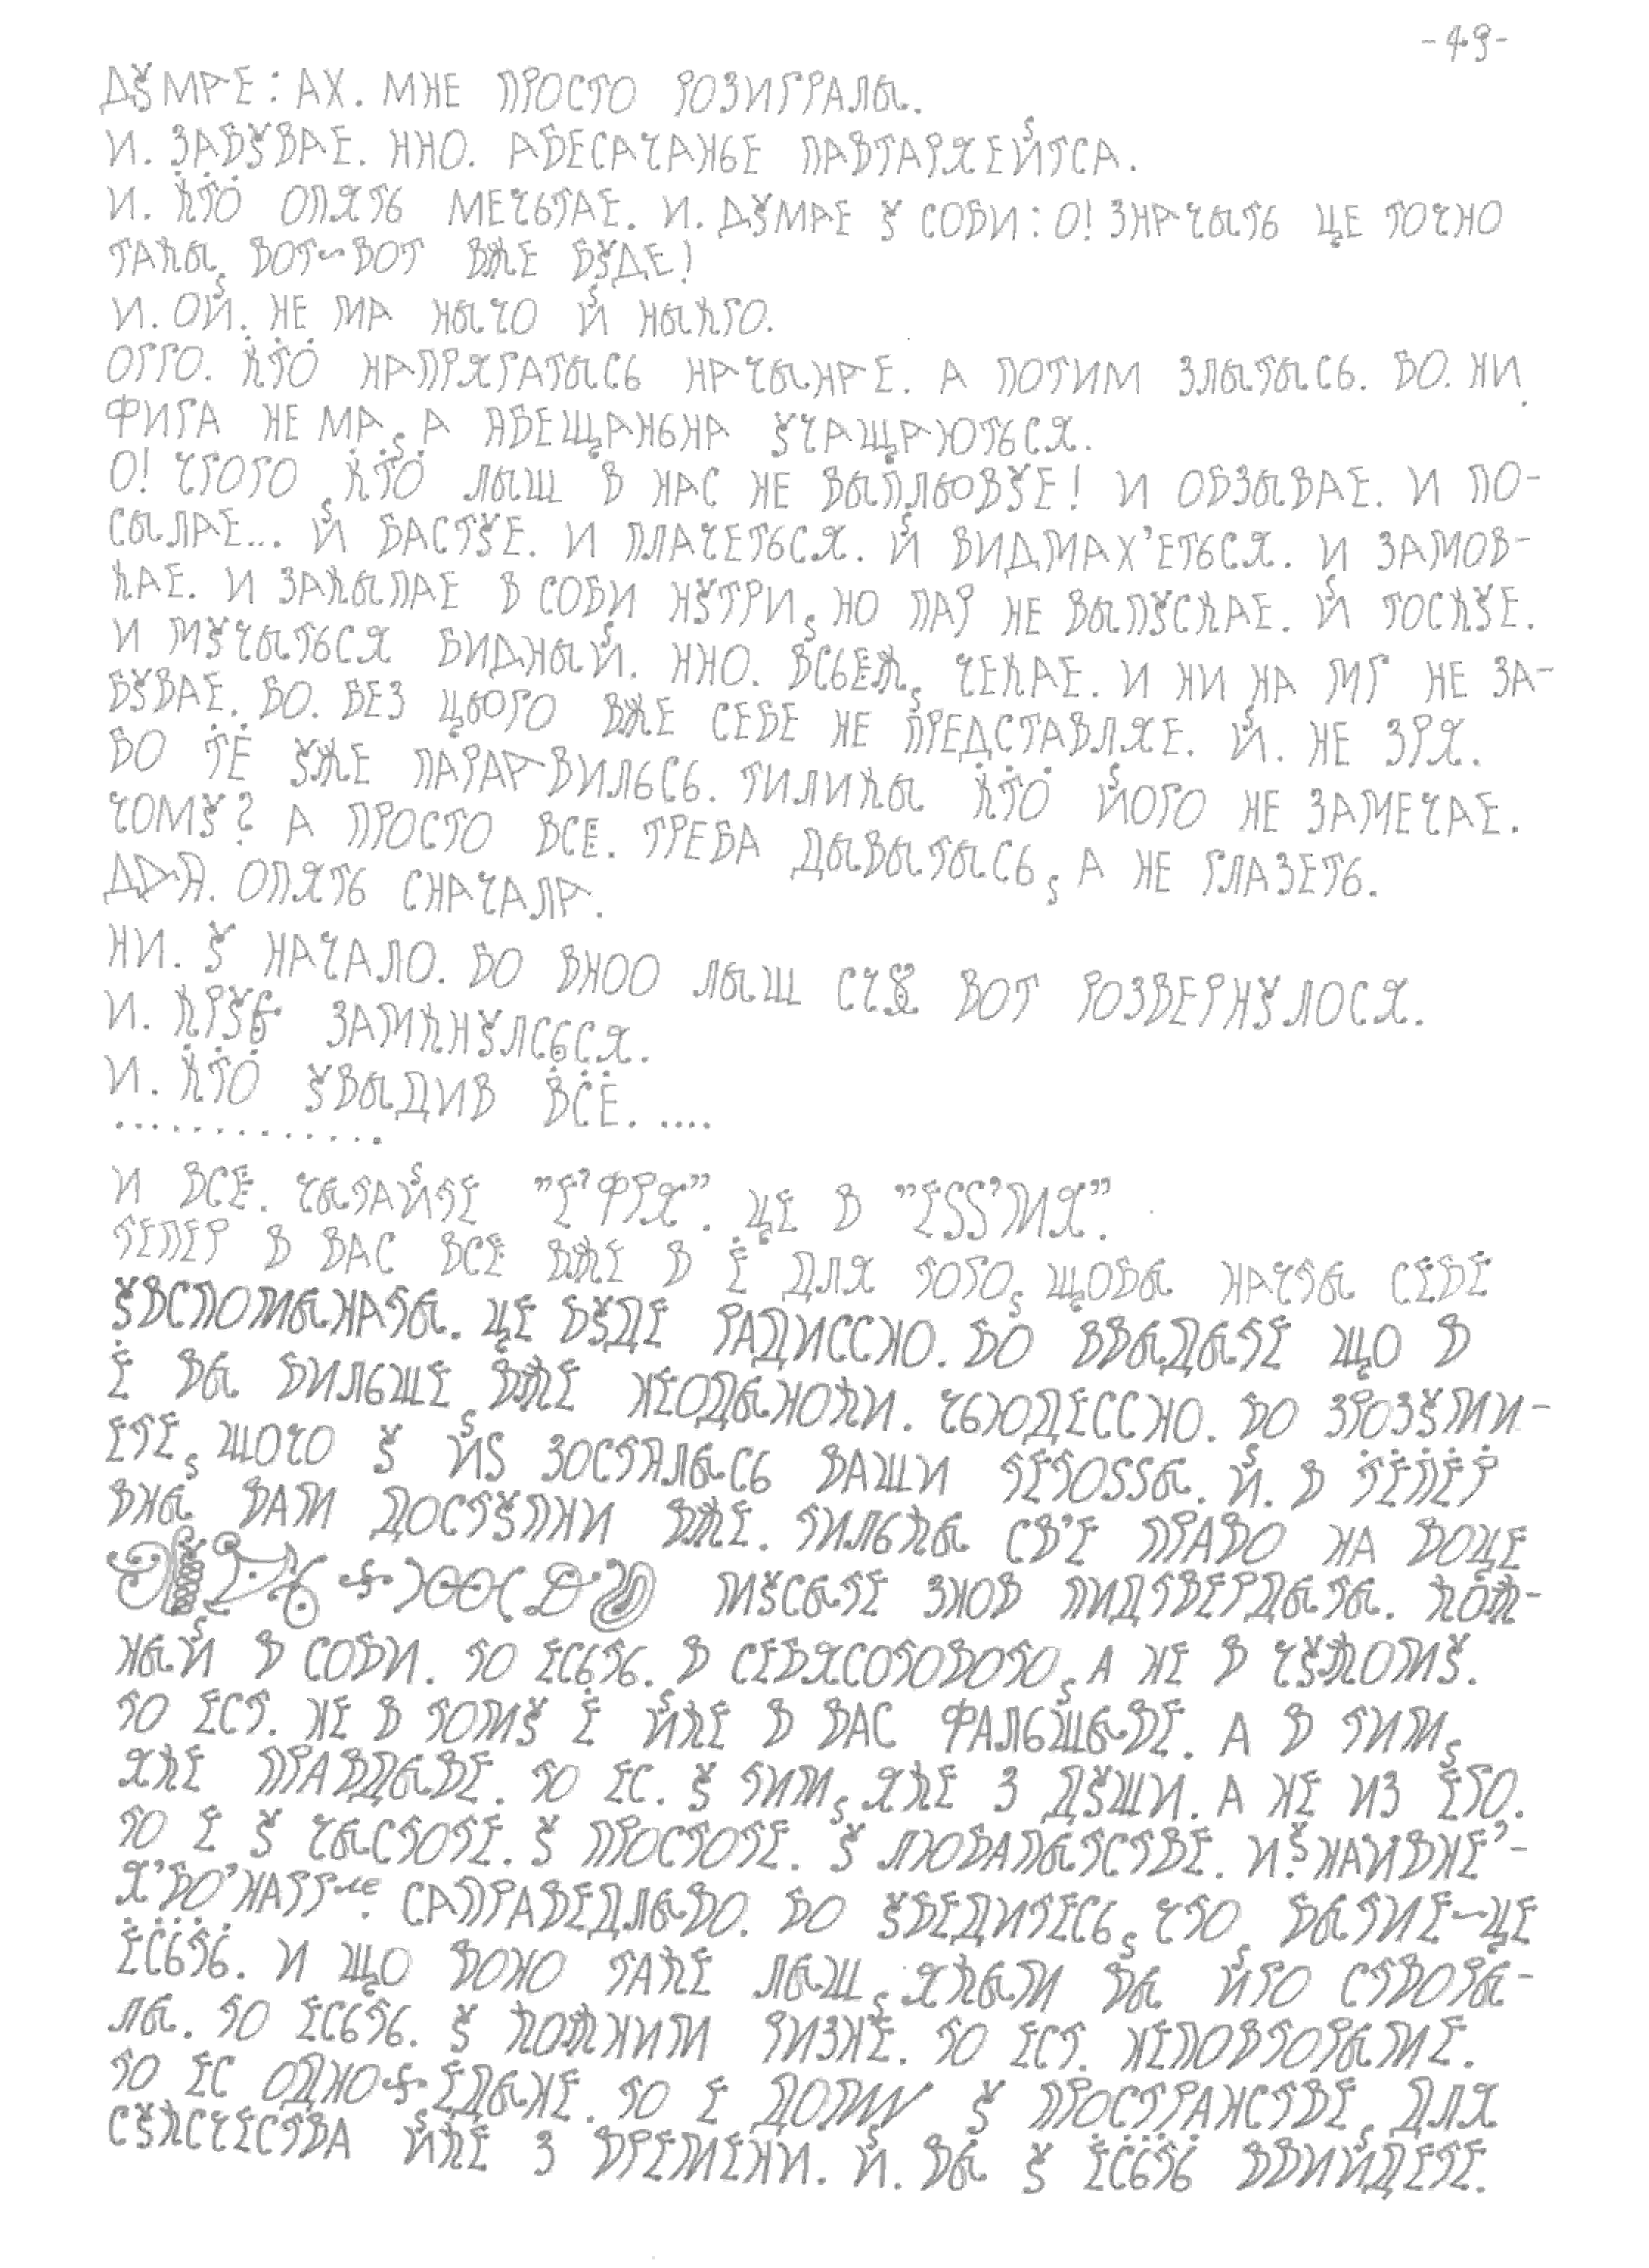 -49-
ДУМАЕ: АХ. МНЕ ПРОСТО РОЗИГРАЛЫ.
И. ЗАБУВАЕ. ННО. АБЕСАЧАНЬЕ ПАВТАРЯЕЙТСА.
И. КТО ОПЯТЬ МЕЧЬТАЕ. И. ДУМАЕ У СОБИ: О! ЗНАЧЫТЬ ЦЕ ТОЧНО
ТАКЫ. ВОТ~ВОТ ВЖЕ БУДЕ!
И. ОЙ. НЕ МА НЫЧО Й НЫКГО.
ОГГО. КТО НАПРЯГАТЫСЬ НАЧЫНАЕ. А ПОТИМ ЗЛЫТЫСЬ. БО. НИ
ФИГА НЕ МА, А АБЕЩАНЬНА УЧАЩАЮТЬСЯ.
О! ЧГОГО КТО ЛЫШ В НАС НЕ ВЫПЛЬОВУЕ! И ОБЗЫВАЕ. И ПО-
СЫЛАЕ... Й БАСТУЕ. И ПЛАЧЕТЬСЯ. Й ВИДМАХ'ЕТЬСЯ. И ЗАМОВ-
КАЕ. И ЗАКЫПАЕ В СОБИ НУТРИ, НО ПАР НЕ ВЫПУСКАЕ. Й ТОСКУЕ.
И МУЧЫТЬСЯ БИДНЫЙ. ННО. ВСЬЕЖ, ЧЕКАЕ. И НИ НА МГ НЕ ЗА-
БУВАЕ. БО. БЕЗ ЦЬОГО ВЖЕ СЕБЕ НЕ ПРЕДСТАВЛЯЕ. Й. НЕ ЗРЯ.
БО ТЕ УЖЕ ПАРАВИЛЬСЬ. ТИЛИКЫ КТО ЙОГО НЕ ЗАМЕЧАЕ.
ЧОМУ? А ПРОСТО ВСЕ. ТРЕБА ДЫВЫТЫСЬ, А НЕ ГЛАЗЕТЬ.
ДДА. ОПЯТЬ СНАЧАЛА.
НИ. У НАЧАЛО. БО ВНОО ЛЫШ СЧ ВОТ РОЗВЕРНУЛОСЯ.
И. КРУГ ЗАМКНУЛСЬСЯ.
И. КТО УВЫДИВ ВСЕ. ....
.............
И ВСЕ. ЧЫТАЙТЕ "Е'ФРЯ". ЦЕ В "ЕSS'МИЯ".
ТЕПЕР В ВАС ВСЕ ВЖЕ В Ė ДЛЯ ТОГО, ЩОБЫ НАЧТЫ СЕБЕ
УВСПОМЫНАТЫ. ЦЕ БУДЕ РАДИССНО. БО ВВЫДЫТЕ ЩО В
Ė ВЫ БИЛЬШЕ ВЖЕ НЕОДЫНОКИ. ЧЬЮДЕССНО. БО ЗРОЗУМИ-
ЕТЕ, ШОЧО У ЙS ЗОСТАЛЫСЬ ВАШИ ТЕТОSSЫ. Й. В ТЕПЕР
ВНЫ ВАМ ДОСТУПНИ ВЖЕ. ТИЛЬКЫ СВ'Е ПРАВО НА ВОЦЕ
МУСЫТЕ ЗНОВ ПИДТВЕРДЫТЫ. КОЖ-
НЫЙ В СОБИ. ТО ЕСЬТЬ. В СЕБЯСОТОВОГО, А НЕ В ЧУЖОМУ.
ТО ЕСТ. НЕ В ТОМУ Ė ЙКЕ В ВАС ФАЛЬШЫВЕ. А В ТИМ,
ЯКЕ ПРАВДЫВЕ. ТО ЕС. У ТИМ, ЯКЕ З ДУШИ. А НЕ ИЗ ЕГО.
ТО Е У ЧЫСТОТЕ. У ПРОСТОТЕ. У ЛЮБАПЫТСТВЕ. И. У НАИВНЕ'-
САПРАВЕДЛЫВО. БО УБЕДИТЕСЬ, ЧТО, БЫТИЕ~ЦЕ
ЕСЬТЬ. И ЩО ВОНО ТАКЕ ЛЫШ, ЯКЫМ ВЫ ЙГО СТВОРЫ-
ЛЫ. ТО ЕСЬТЬ. У КОЖНИМ РИЗНЕ. ТО ЕСТ. НЕПОВТОРЫМЕ.
ТО ЕС ОДНО ЕДЫНЕ. ТО Е ДОМИ У ПРОСТРАНСТВЕ, ДЛЯ
СУКСЧЕСТВА ЙКЕ З ВРЕМЕНИ. Й. ВЫ У ЕСЬТЬ ВВИЙДЕТЕ.